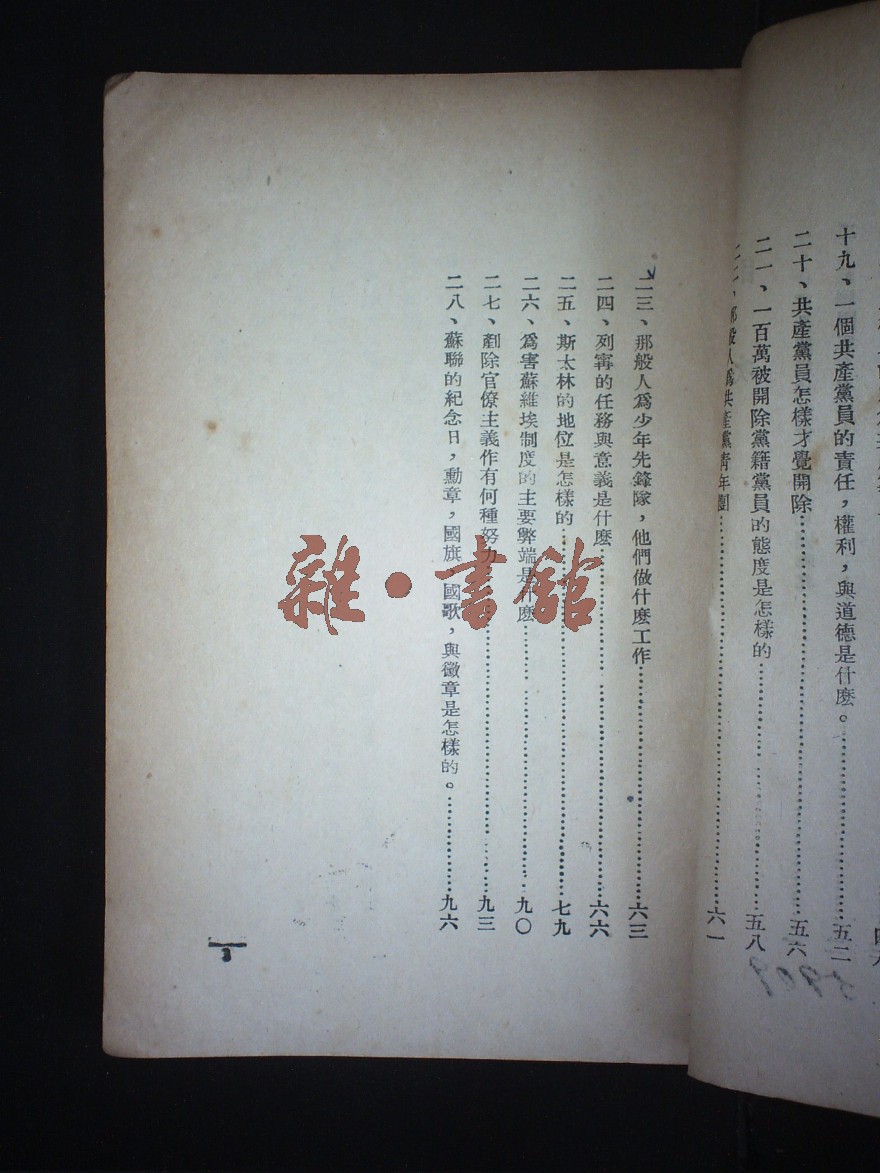 十九、一個共產黨員的責任，權利，與道德是什麽。………………五二
二十、共產黨員怎樣才覺開除………………五六
二一、一百萬被開除黨籍黨員的態度是怎樣的………………五八
二二、那般人爲共產黨青年團………………六一
二三、那般人爲少年先鋒隊，他們做什麽工作………………六三
二四、列寧的任務與意義是什麽………………六六
二五、斯太林的地位是怎樣的………………七九
二六、爲害蘇維埃制度的主要弊端是什麽………………九〇
二七、剷除官僚主義作有何種努力………………九三
二八、蘇聯的紀念日，勳章，國旗，國歌，與徽章是怎樣的。………………九六
3
雜·書館